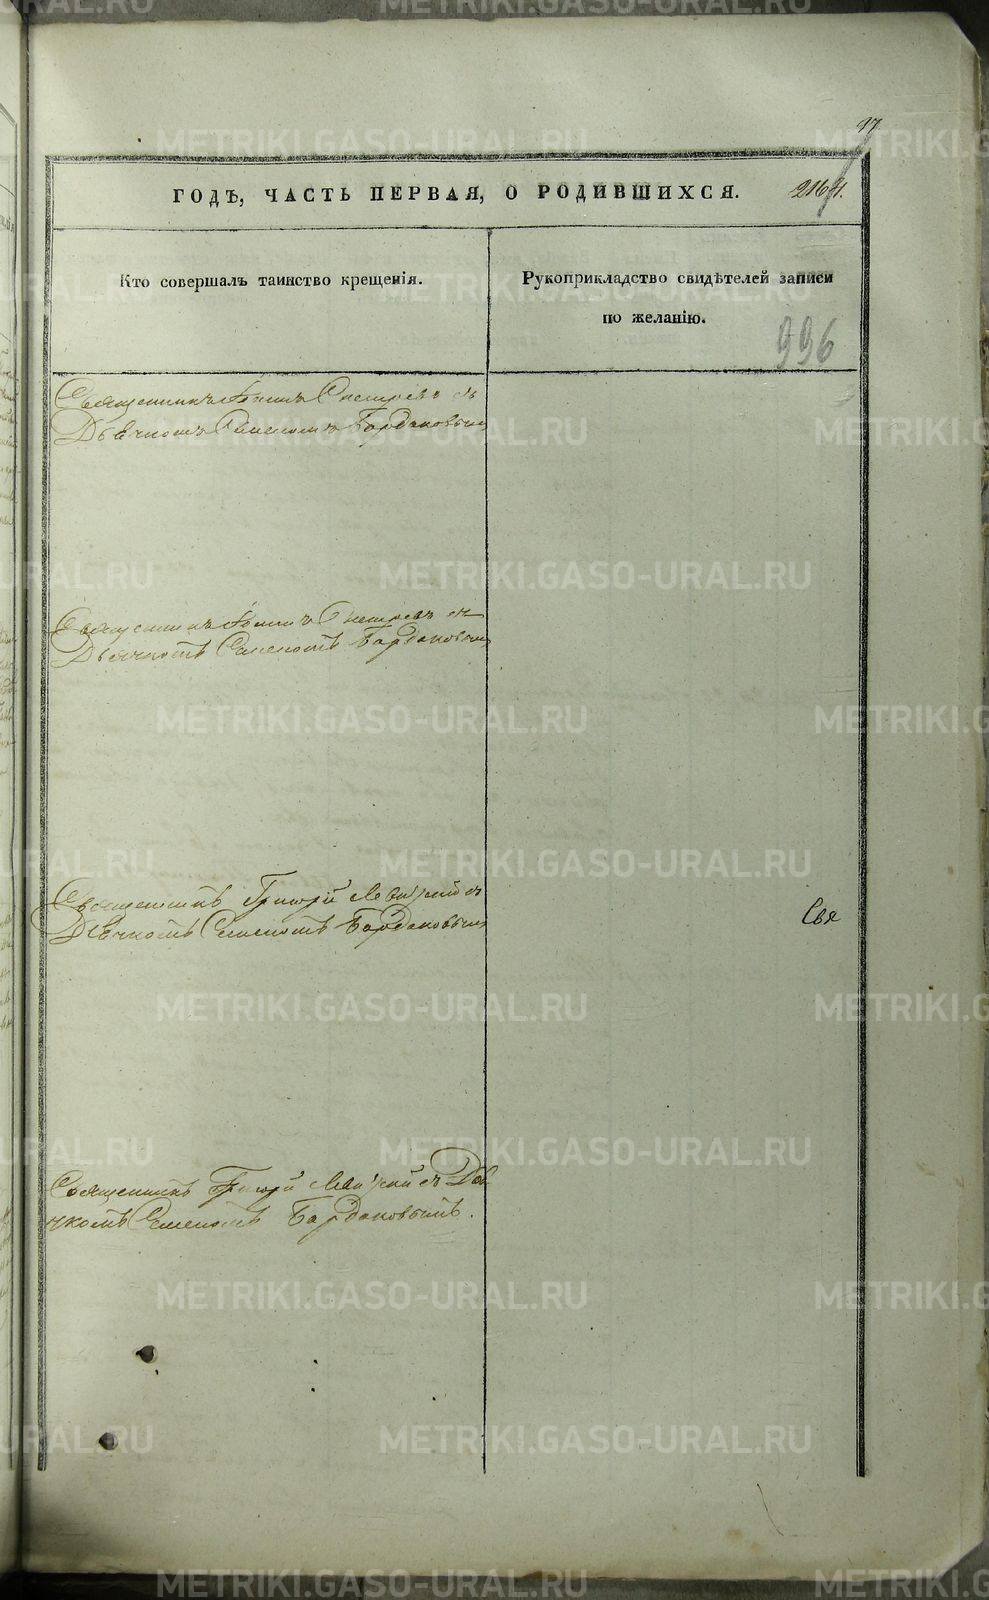 97
2164.
ГОДЪ, ЧАСТЬ ПЕРВАЯ, О РОДИВШИХСЯ.
Кто совершалъ таинство крещенія.
Рукоприкладство свидѣтелей записи
по желанію.
996
Священникъ Іоаннъ съ
Дьячкомъ Семеномъ Бардаковымъ
Священникъ Іоаннъ съ
Дьячкомъ Семеномъ Бардаковымъ
Священникъ Григорій съ
Дьячкомъ Семеномъ Бардаковымъ
Свя
Священникъ Григорій съ Дья
чкомъ Семеномъ Бардаковымъ.
METRIKI.GASO-URAL.RU